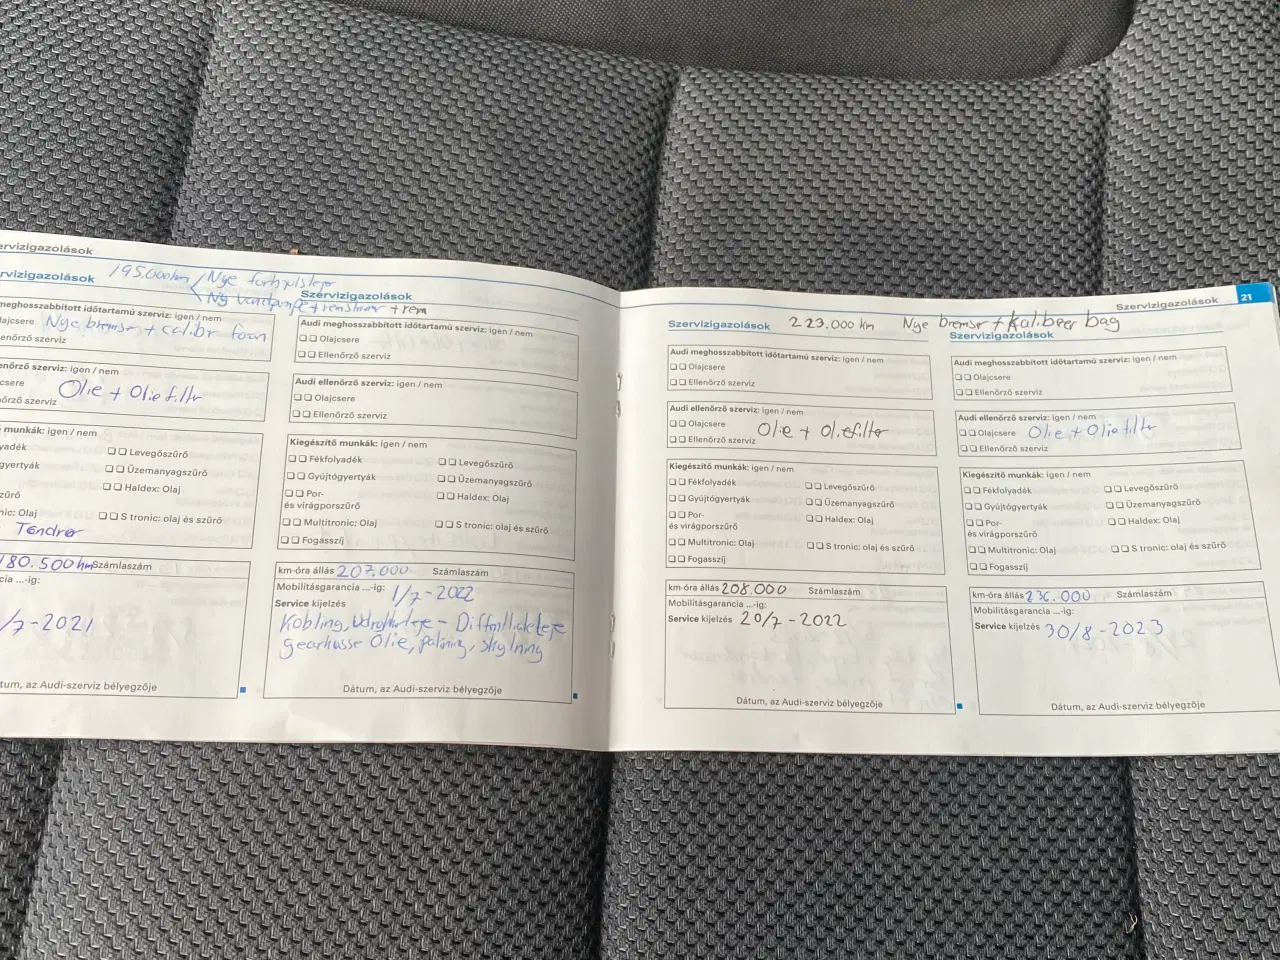 Szervizigazolások
Szervizigazolások
195.000km
Nye
Ny vandpumpe + remstrammer + rem
meghosszabbított időtartamú szerviz: igen / nem
Olajcsere Nye bremser + calibr foran
Ellenőrző szerviz
ellenőrző szerviz: igen / nem
csere Olie + Oliefilter
őrző szerviz
munkák: igen / nem
yadék
☐ ☐ Levegőszűrő
gyertyák
☐ ☐ Üzemanyagszűrő
☐ ☐ Haldex: Olaj
zűrő
nic: Olaj
☐ ☐ S tronic: olaj és szűrő
Tændrør
180.500km Számlaszám
cia ...-ig:
/7-2021
tum, az Audi-szerviz bélyegzője
Szervizigazolások
Audi meghosszabbított időtartamú szerviz: igen / nem
☐ ☐ Olajcsere
☐ ☐ Ellenőrző szerviz
Audi ellenőrző szerviz: igen / nem
☐ ☐ Olajcsere
☐ ☐ Ellenőrző szerviz
Kiegészítő munkák: igen / nem
☐ ☐ Fékfolyadék
☐ ☐ Levegőszűrő
☐ ☐ Gyújtógyertyák
☐ ☐ Üzemanyagszűrő
☐ ☐ Por-
és virágporszűrő
☐ ☐ Haldex: Olaj
☐ ☐ Multitronic: Olaj
☐ ☐ S tronic: olaj és szűrő
☐ ☐ Fogasszíj
km-óra állás 207.000 Számlaszám
Mobilitásgarancia ...-ig: 1/7-2022
Service kijelzés
Kobling, Udrykkerleje - Differentialeleje
gearkasse Olie, pakning, skylning
Dátum, az Audi-szerviz bélyegzője
Szervizigazolások 21
Szervizigazolások 223.000 km Nye bremser + Kaliber bag
Audi meghosszabbított időtartamú szerviz: igen / nem
☐ ☐ Olajcsere
☐ ☐ Ellenőrző szerviz
Audi ellenőrző szerviz: igen / nem
☐ ☐ Olajcsere Olie + Oliefilter
☐ ☐ Ellenőrző szerviz
Kiegészítő munkák: igen / nem
☐ ☐ Fékfolyadék
☐ ☐ Levegőszűrő
☐ ☐ Gyújtógyertyák
☐ ☐ Üzemanyagszűrő
☐ ☐ Por-
és virágporszűrő
☐ ☐ Haldex: Olaj
☐ ☐ Multitronic: Olaj
☐ ☐ S tronic: olaj és szűrő
☐ ☐ Fogasszíj
km-óra állás 208.000 Számlaszám
Mobilitásgarancia ...-ig:
Service kijelzés 20/7-2022
Dátum, az Audi-szerviz bélyegzője
Szervizigazolások
Audi meghosszabbított időtartamú szerviz: igen / nem
☐ ☐ Olajcsere
☐ ☐ Ellenőrző szerviz
Audi ellenőrző szerviz: igen / nem
☐ ☐ Olajcsere Olie + Oliefilter
☐ ☐ Ellenőrző szerviz
Kiegészítő munkák: igen / nem
☐ ☐ Fékfolyadék
☐ ☐ Levegőszűrő
☐ ☐ Gyújtógyertyák
☐ ☐ Üzemanyagszűrő
☐ ☐ Por-
és virágporszűrő
☐ ☐ Haldex: Olaj
☐ ☐ Multitronic: Olaj
☐ ☐ S tronic: olaj és szűrő
☐ ☐ Fogasszíj
km-óra állás 236.000 Számlaszám
Mobilitásgarancia ...-ig:
Service kijelzés 30/8-2023
Dátum, az Audi-szerviz bélyegzője